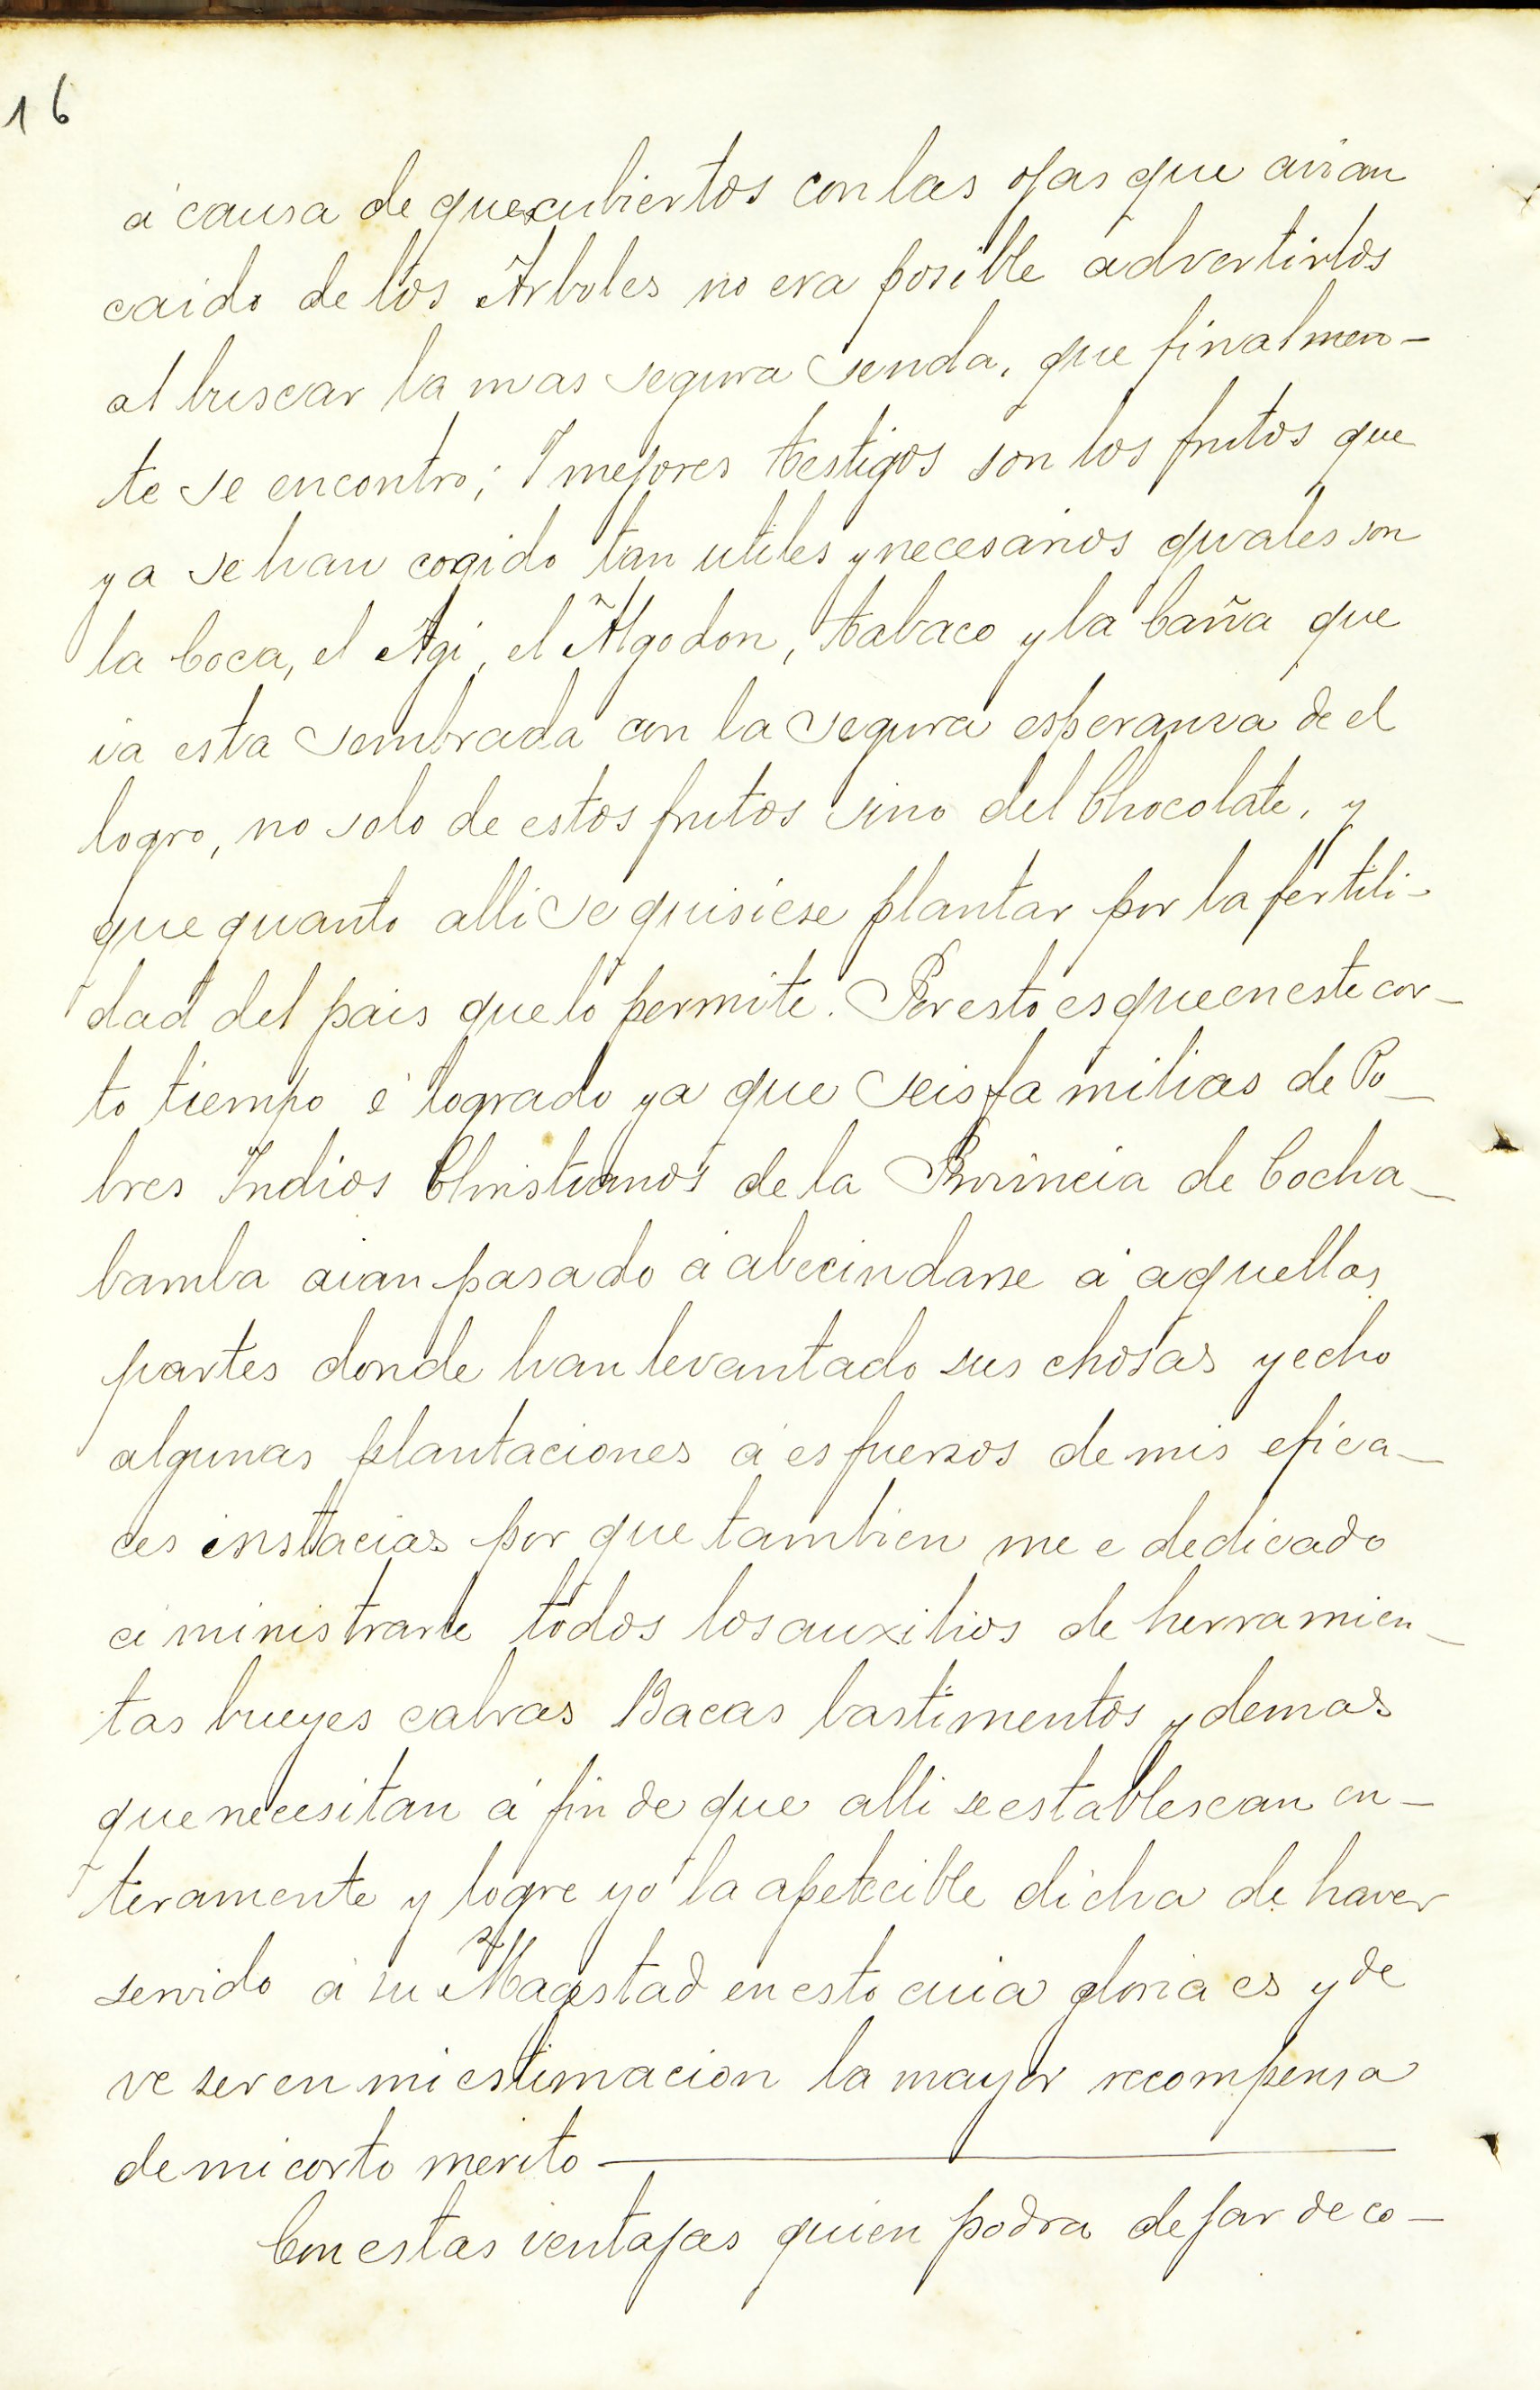 16
á causa de que cubiertos con las ojas que avian
caido de los Arboles no era posible advertirlos
al buscar la mas segura senda, que finalmen-
te se encontro; I mejores testigos son los frutos que
ya se han cogido tan utiles y necesarios quales son
la Coca, el Agi, el Algodon, tabaco y la Caña que
ia esta sembrada con la segura esperansa de el
logro, no solo de estos frutos sino del Chocolate, y
que quanto alli se quisiese plantar por la fertili-
dad del pais que lo permite. Por esto es que en este cor-
to tiempo é logrado ya que seis familias de Po-
bres Indios Christianos de la Provincia de Cocha-
bamba aian pasado á abecindarse á aquellas
partes donde han levantado sus chosas y echo
algunas plantaciones á esfuersos de mis efica-
ces instacias por que tambien me e dedicado
á ministrarle todos los auxilios de herramien-
tas bueyes cabras Bacas bastimentos y demas
que necesitan á fin de que alli se establescan en-
teramente y logre yo la apetecible dicha de haver
servido á su Magestad en esto cuia gloria es y de
ve ser en mi estimacion la mayor recompensa
de mi corto merito
Con estas ventajas quien podra dejar de co-